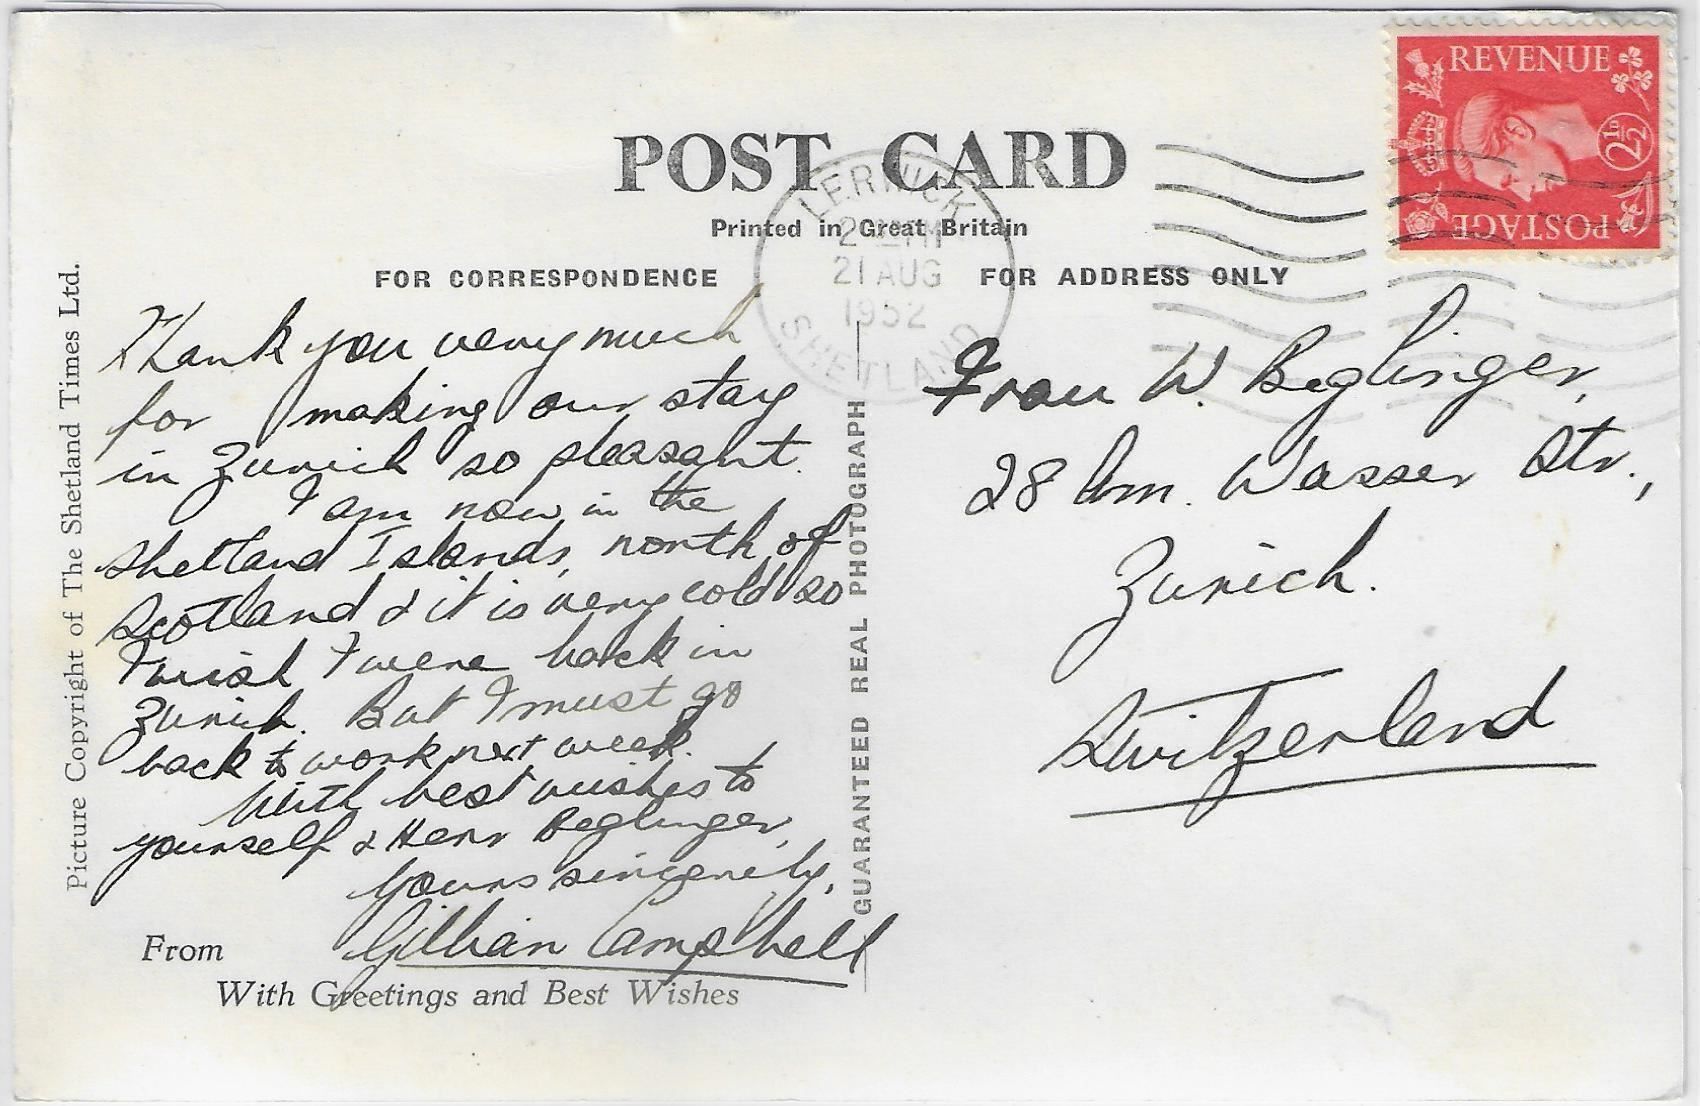 POST CARD
Printed in Great Britain
FOR CORRESPONDENCE
FOR ADDRESS ONLY
REVENUE
POSTAGE
2½D
LERWICK
21 AUG
1952
SHETLAND
Thank you very much
for making our stay
in Zurich so pleasant.
I am now in the
Shetland Islands, north of
Scotland & it is very cold so
I wish I were back in
Zurich. But I must go
back to work next week.
With best wishes to
yourself & Herr Beglinger,
Yours sincerely,
Gillian Campbell
From
With Greetings and Best Wishes
Picture Copyright of The Shetland Times Ltd.
GUARANTEED REAL PHOTOGRAPH
Frau W. Beglinger,
28 Am. Wasser Str.,
Zurich.
Switzerland